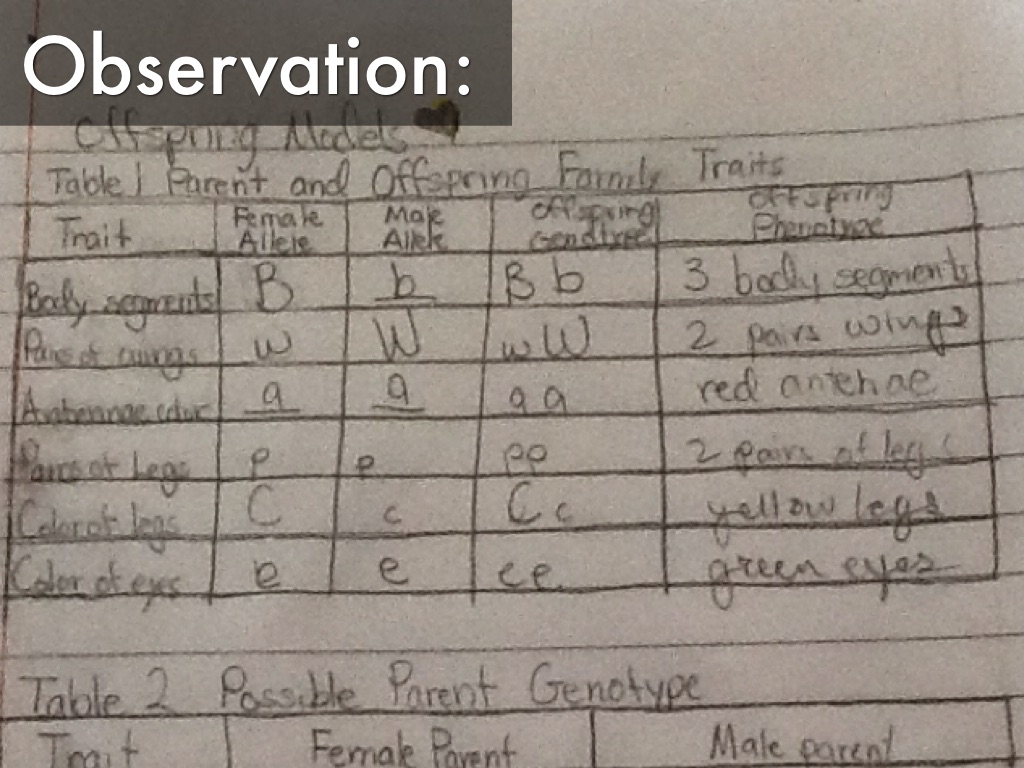 Observation:
Offspring Models
Table 1 Parent and Offspring Family Traits
Trait Female Allele Male Allele Offspring Genotype Offspring Phenotype
Body segments B b Bb 3 body segments
Pairs of wings w W wW 2 pairs wings
a a aa red antenae
Pairs of Legs p p pp 2 pairs of legs
Color of legs C c Cc yellow legs
Color of eyes e e ee green eyes
Table 2 Possible Parent Genotype
Trait Female Parent Male parent